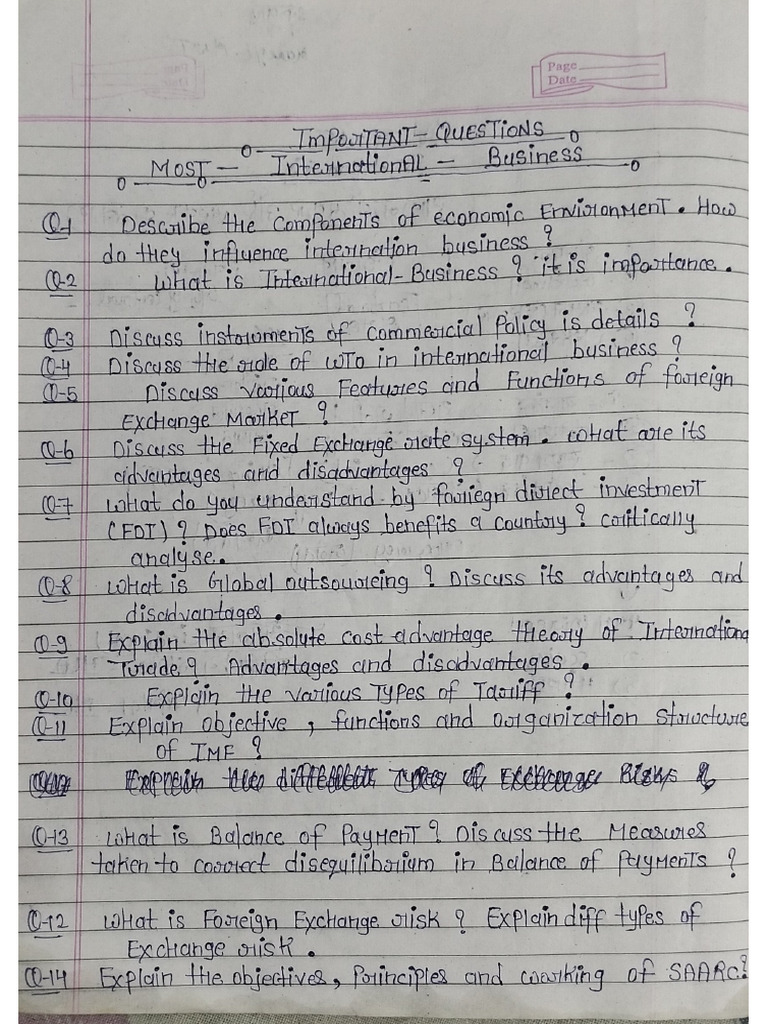 Page
Date
IMPORTANT - QUESTIONS
MOST - InternationAL - Business
Q-1 Describe the components of economic Environment. How
do they influence internation business ?
Q-2 What is International-Business ? it is importance.
Q-3 Discuss instruments of commercial Policy is details ?
Q-4 Discuss the role of WTO in international business ?
Q-5 Discuss various Features and Functions of foreign
Exchange Market ?
Q-6 Discuss the Fixed Exchange rate system. What are its
advantages and disadvantages ?
Q-7 What do you understand by foriegn direct investment
(FDI) ? Does FDI always benefits a country ? critically
analyse.
Q-8 What is Global outsourcing ? Discuss its advantages and
disadvantages.
Q-9 Explain the absolute cost advantage theory of Internationa
Trade ? Advantages and disadvantages.
Q-10 Explain the various Types of Tariff ?
Q-11 Explain objective, functions and organization structure
of IMF ?
Explain the different Types of Exchange Risks ?
Q-13 What is Balance of Payment ? Discuss the Measures
taken to correct disequilibrium in Balance of Payments ?
Q-12 What is Foreign Exchange risk ? Explain diff types of
Exchange risk.
Q-14 Explain the objectives, Principles and working of SAARC?